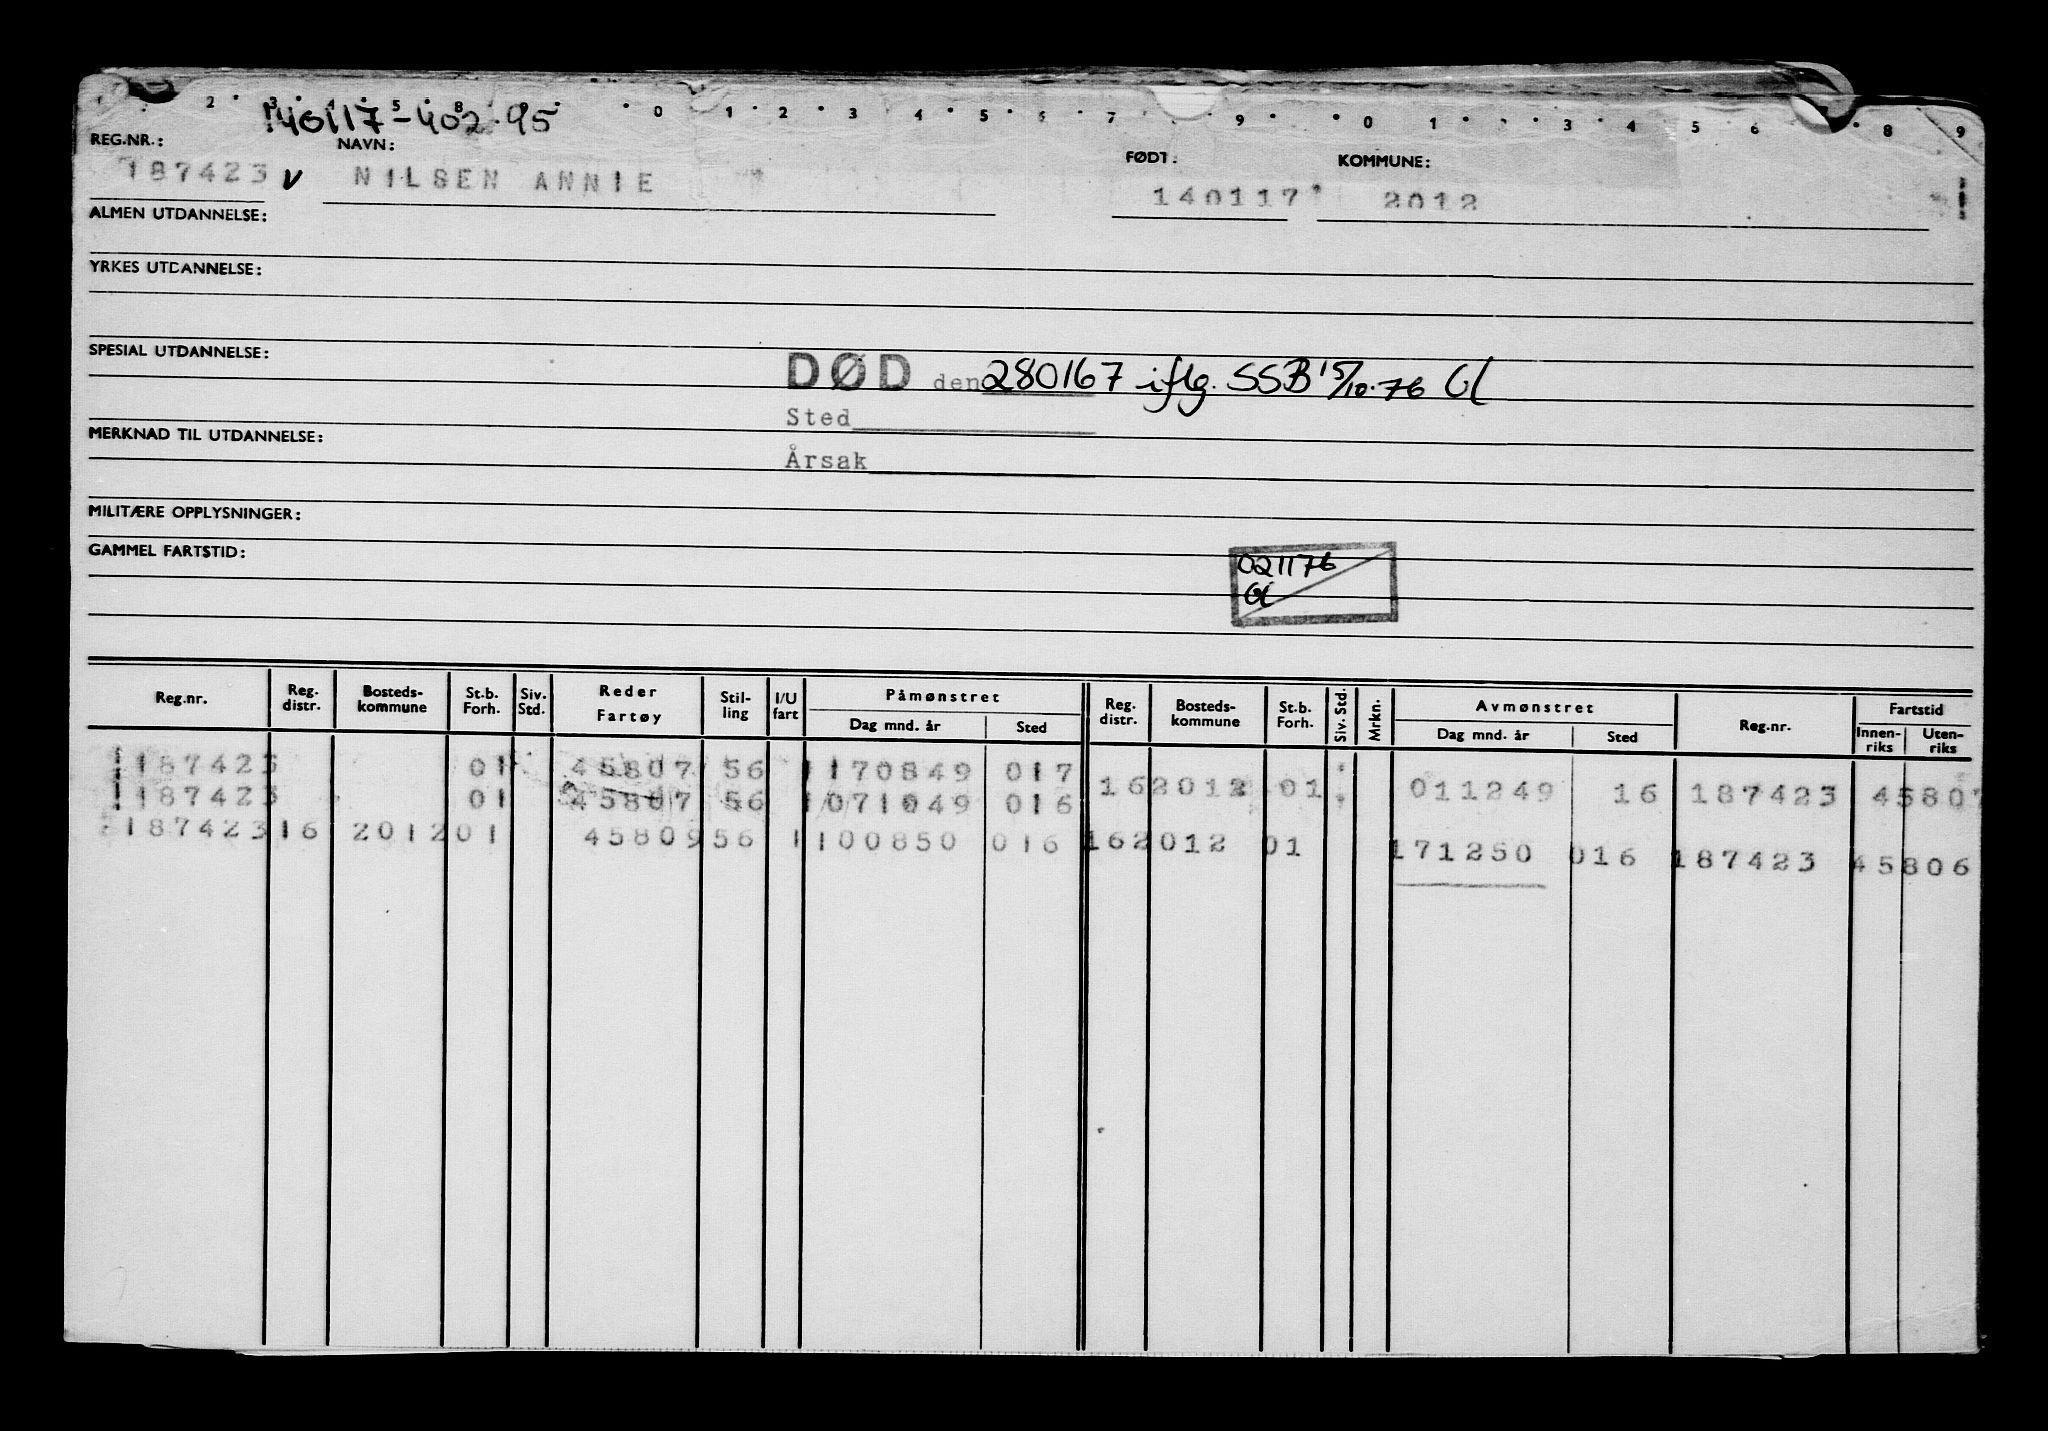 2 3 4 5 8 0 1 2 3 4 5 6 7 9 0 1 3 4 5 6 8 9
140117-402.95
REG.NR.: NAVN: FØDT: KOMMUNE:
187423 v NILSEN ANNIE 140117 2012
ALMEN UTDANNELSE:
YRKES UTDANNELSE:
SPESIAL UTDANNELSE:
DØD den 280167 iflg. SSB 15/10-76 Gl
Sted
MERKNAD TIL UTDANNELSE:
Årsak
MILITÆRE OPPLYSNINGER:
GAMMEL FARTSTID:
021176
Gl
Reg.nr. Reg. distr. Bosteds-kommune St.b. Forh. Siv. Std. Reder Fartøy Stil-ling I/U fart Påmønstret Dag mnd. år Sted Reg. distr. Bosteds-kommune St.b. Forh. Siv. Std. Mrkn. Avmønstret Dag mnd. år Sted Reg.nr. Fartstid Innen-riks Uten-riks
187423 01 45807 56 1170849 017
162012 01 011249 16 187423 45807
187423 01 45807 56 1071049 016
187423 16 2012 01 45809 56 1 100850 016 162012 01 171250 016 187423 45806